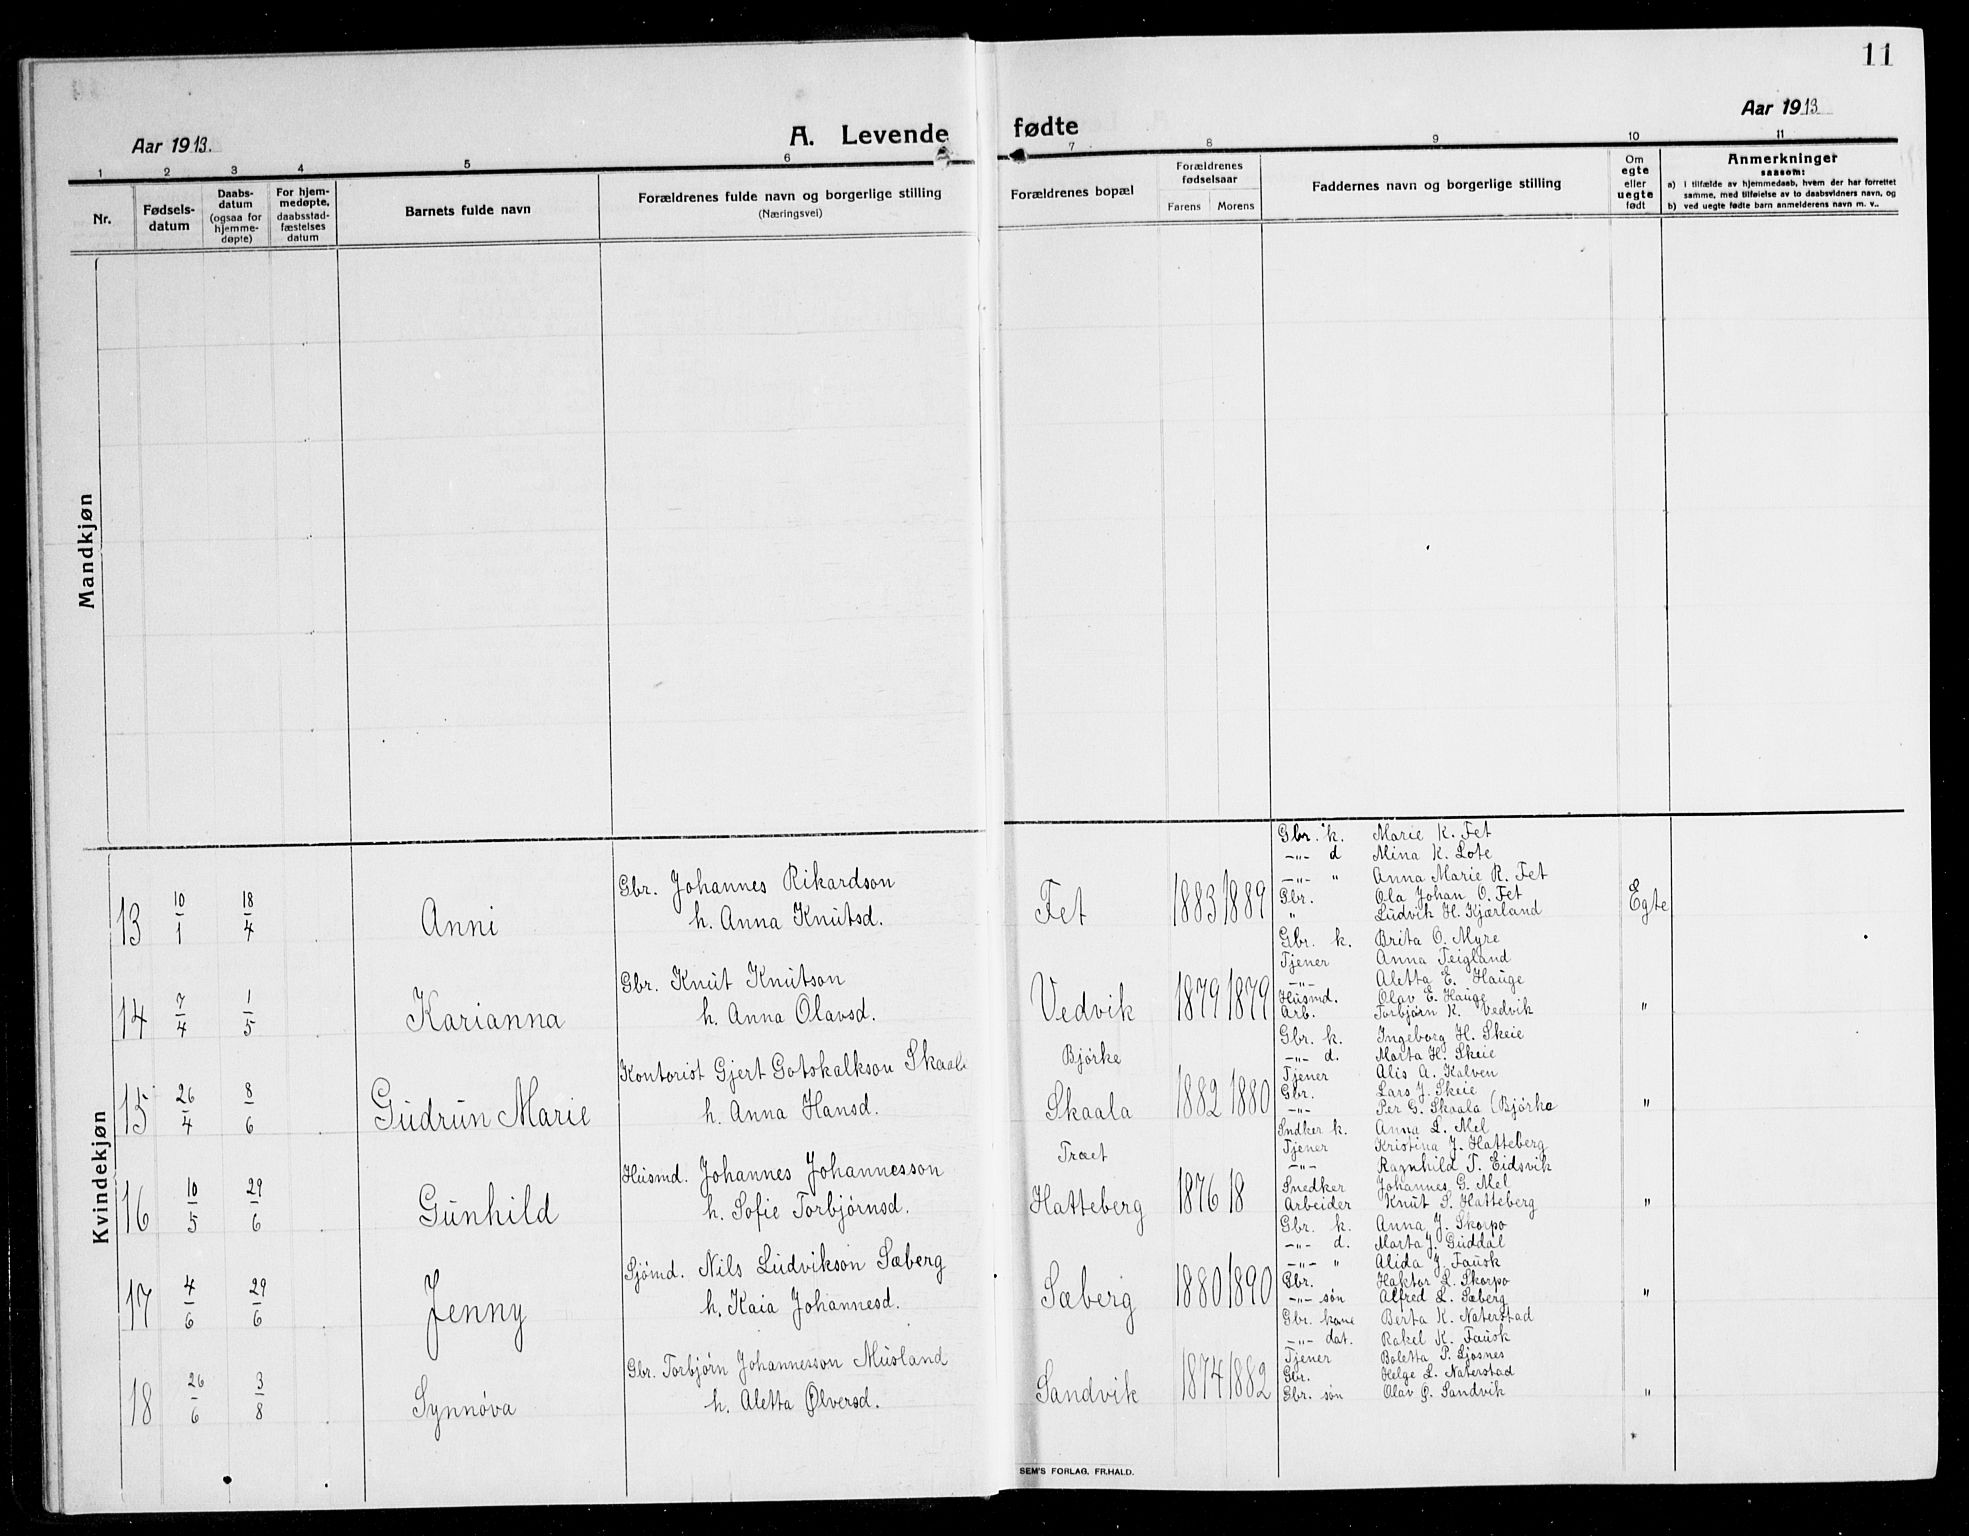 11
Aar 1913.
A. Levende
fødte
Aar 1913
1 2 3 4 5 6 7 8 9 10 11
Nr.
Fødselsdatum
Daabsdatum (ogsaa for hjemmedøpte)
For hjemmedøpte, daabsstadfæstelses datum
Barnets fulde navn
Forældrenes fulde navn og borgerlige stilling
(Næringsvei)
Forældrenes bopæl
Forældrenes fødselsaar
Farens Morens
Faddernes navn og borgerlige stilling
Om egte eller uegte født
Anmerkninger
saasom:
a) I tilfælde av hjemmedaab, hvem der har forrettet
samme, med tilføielse av to daabsvidners navn, og
b) ved uegte fødte barn anmelderens navn m. v..
Mandkjøn
Kvindekjøn
13 10/1 18/4 Anni
Gbr. Johannes Rikardson
h. Anna Knutsd.
Fet 1883 1889
Gbr. k. Marie K. Fet
-„- d Mina K. Lote
-„- „ Anna Marie R. Fet
Gbr. Ola Johan O. Fet
„ Ludvik H. Kjærland
Egte
14 7/4 1/5 Karianna
Gbr. Knut Knutson
h. Anna Olavsd.
Vedvik 1879 1879
Gbr. k. Brita O. Myre
Tjener Anna Teigland
-„- Aletta E. Hauge
Husmd. Olav E. Hauge
Arb. Torbjørn K. Vedvik
„
15 26/4 8/6 Gudrun Marie
Kontorist Gjert Gotskalkson Skaala
h. Anna Hansd.
Bjørke
Skaala 1882 1880
Gbr. k. Ingeborg H. Skeie
-„- d. Marta H. Skeie
Tjener Alis A. Kalven
Gbr. Lars J. Skeie
-„- Per G. Skaala (Bjørke
„
16 10/5 29/6 Gunhild
Husmd. Johannes Johannesson
h. Sofie Torbjørnsd.
Træet
Hatteberg 1876 18
Sndker k. Anna L. Mel
Tjener Kristina J. Hatteberg
-„- Ragnhild T. Eidsvik
Snedker Johannes G. Mel
Arbeider Knut S. Hatteberg
„
17 4/6 29/6 Jenny
Sjømd. Nils Ludvikson Sæberg
h. Kaia Johannesd.
Sæberg 1880 1890
Gbr. k. Anna J. Skorpo
-„- d. Marta J. Guddal
-„- „ Alida J. Fausk
Gbr. Haktor L. Skorpo
-„- søn Alfred L. Sæberg
„
18 26/6 3/8 Synnøva
Gbr. Torbjørn Johannesson Musland
h. Aletta Ølversd.
Sandvik 1874 1882
Gbr. kone Berta K. Naterstad
-„- dat. Rakel K. Fausk
Tjener Boletta P. Ljosnes
Gbr. Helge L. Naterstad
Gbr. søn Olav P. Sandvik
„
SEM'S FORLAG, FR.HALD.